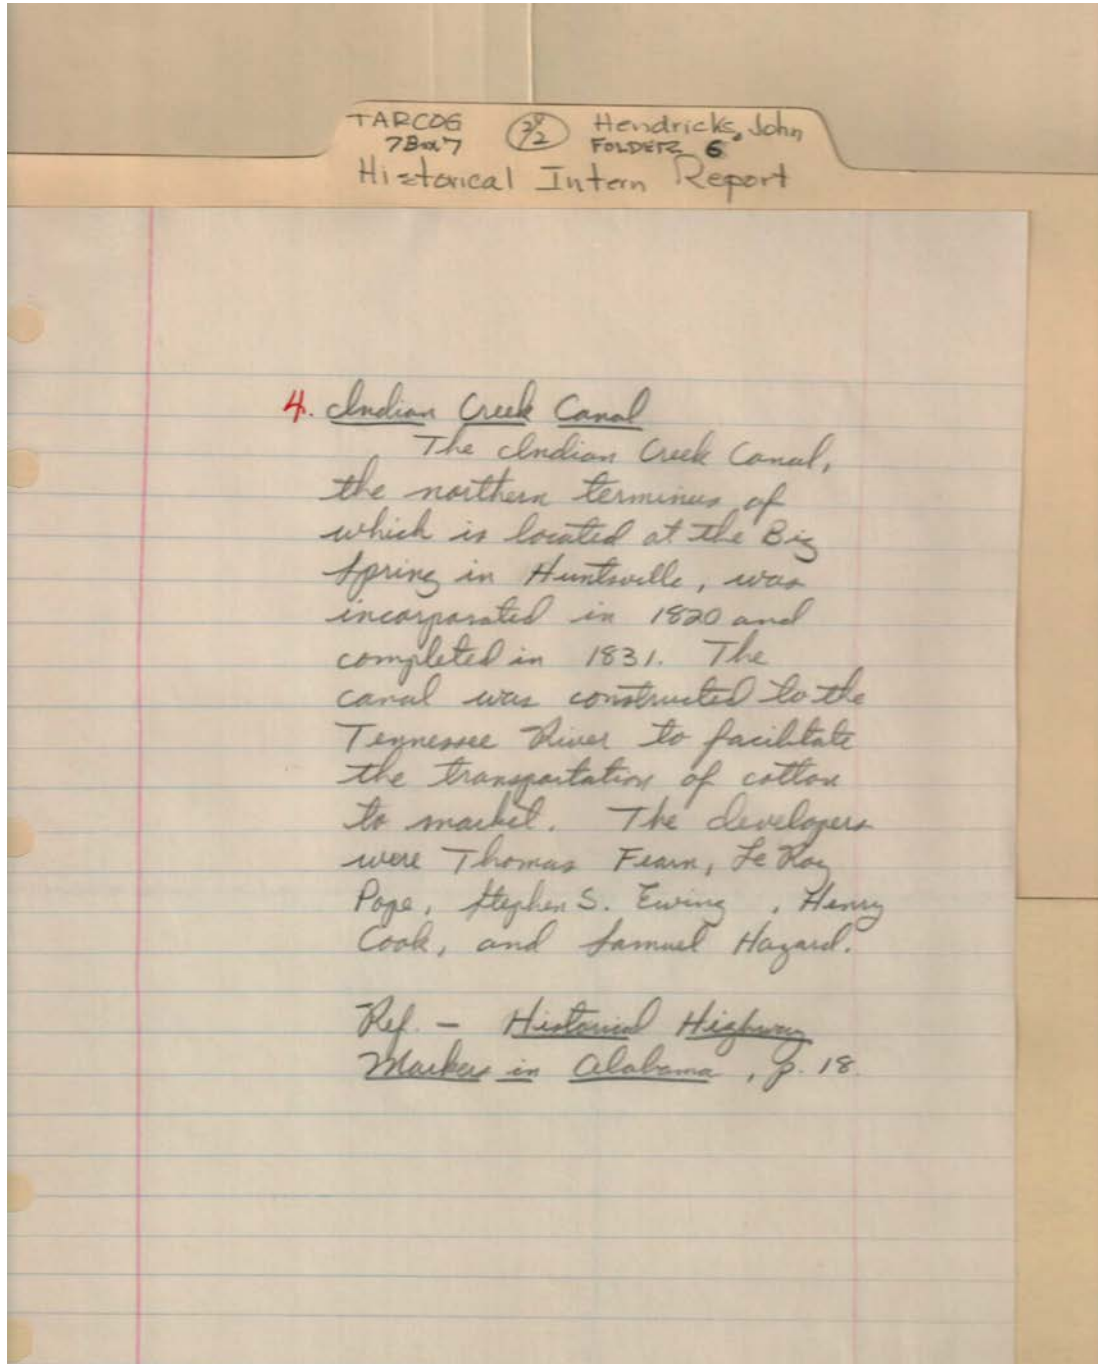 TARCOG Hendricks, John
7Box7 FOLDER 6
Historical Intern Report
4. Indian Creek Canal
The Indian Creek Canal,
the northern terminus of
which is located at the Big
Spring in Huntsville, was
incorporated in 1820 and
completed in 1831. The
canal was constructed to the
Tennessee River to facilitate
the transportation of cotton
to market. The developers
were Thomas Fearn, Le Roy
Pope, Stephen S. Ewing , Henry
Cook, and Samuel Hazard.
Ref. - Historical Highway
Markers in Alabama , p. 18.